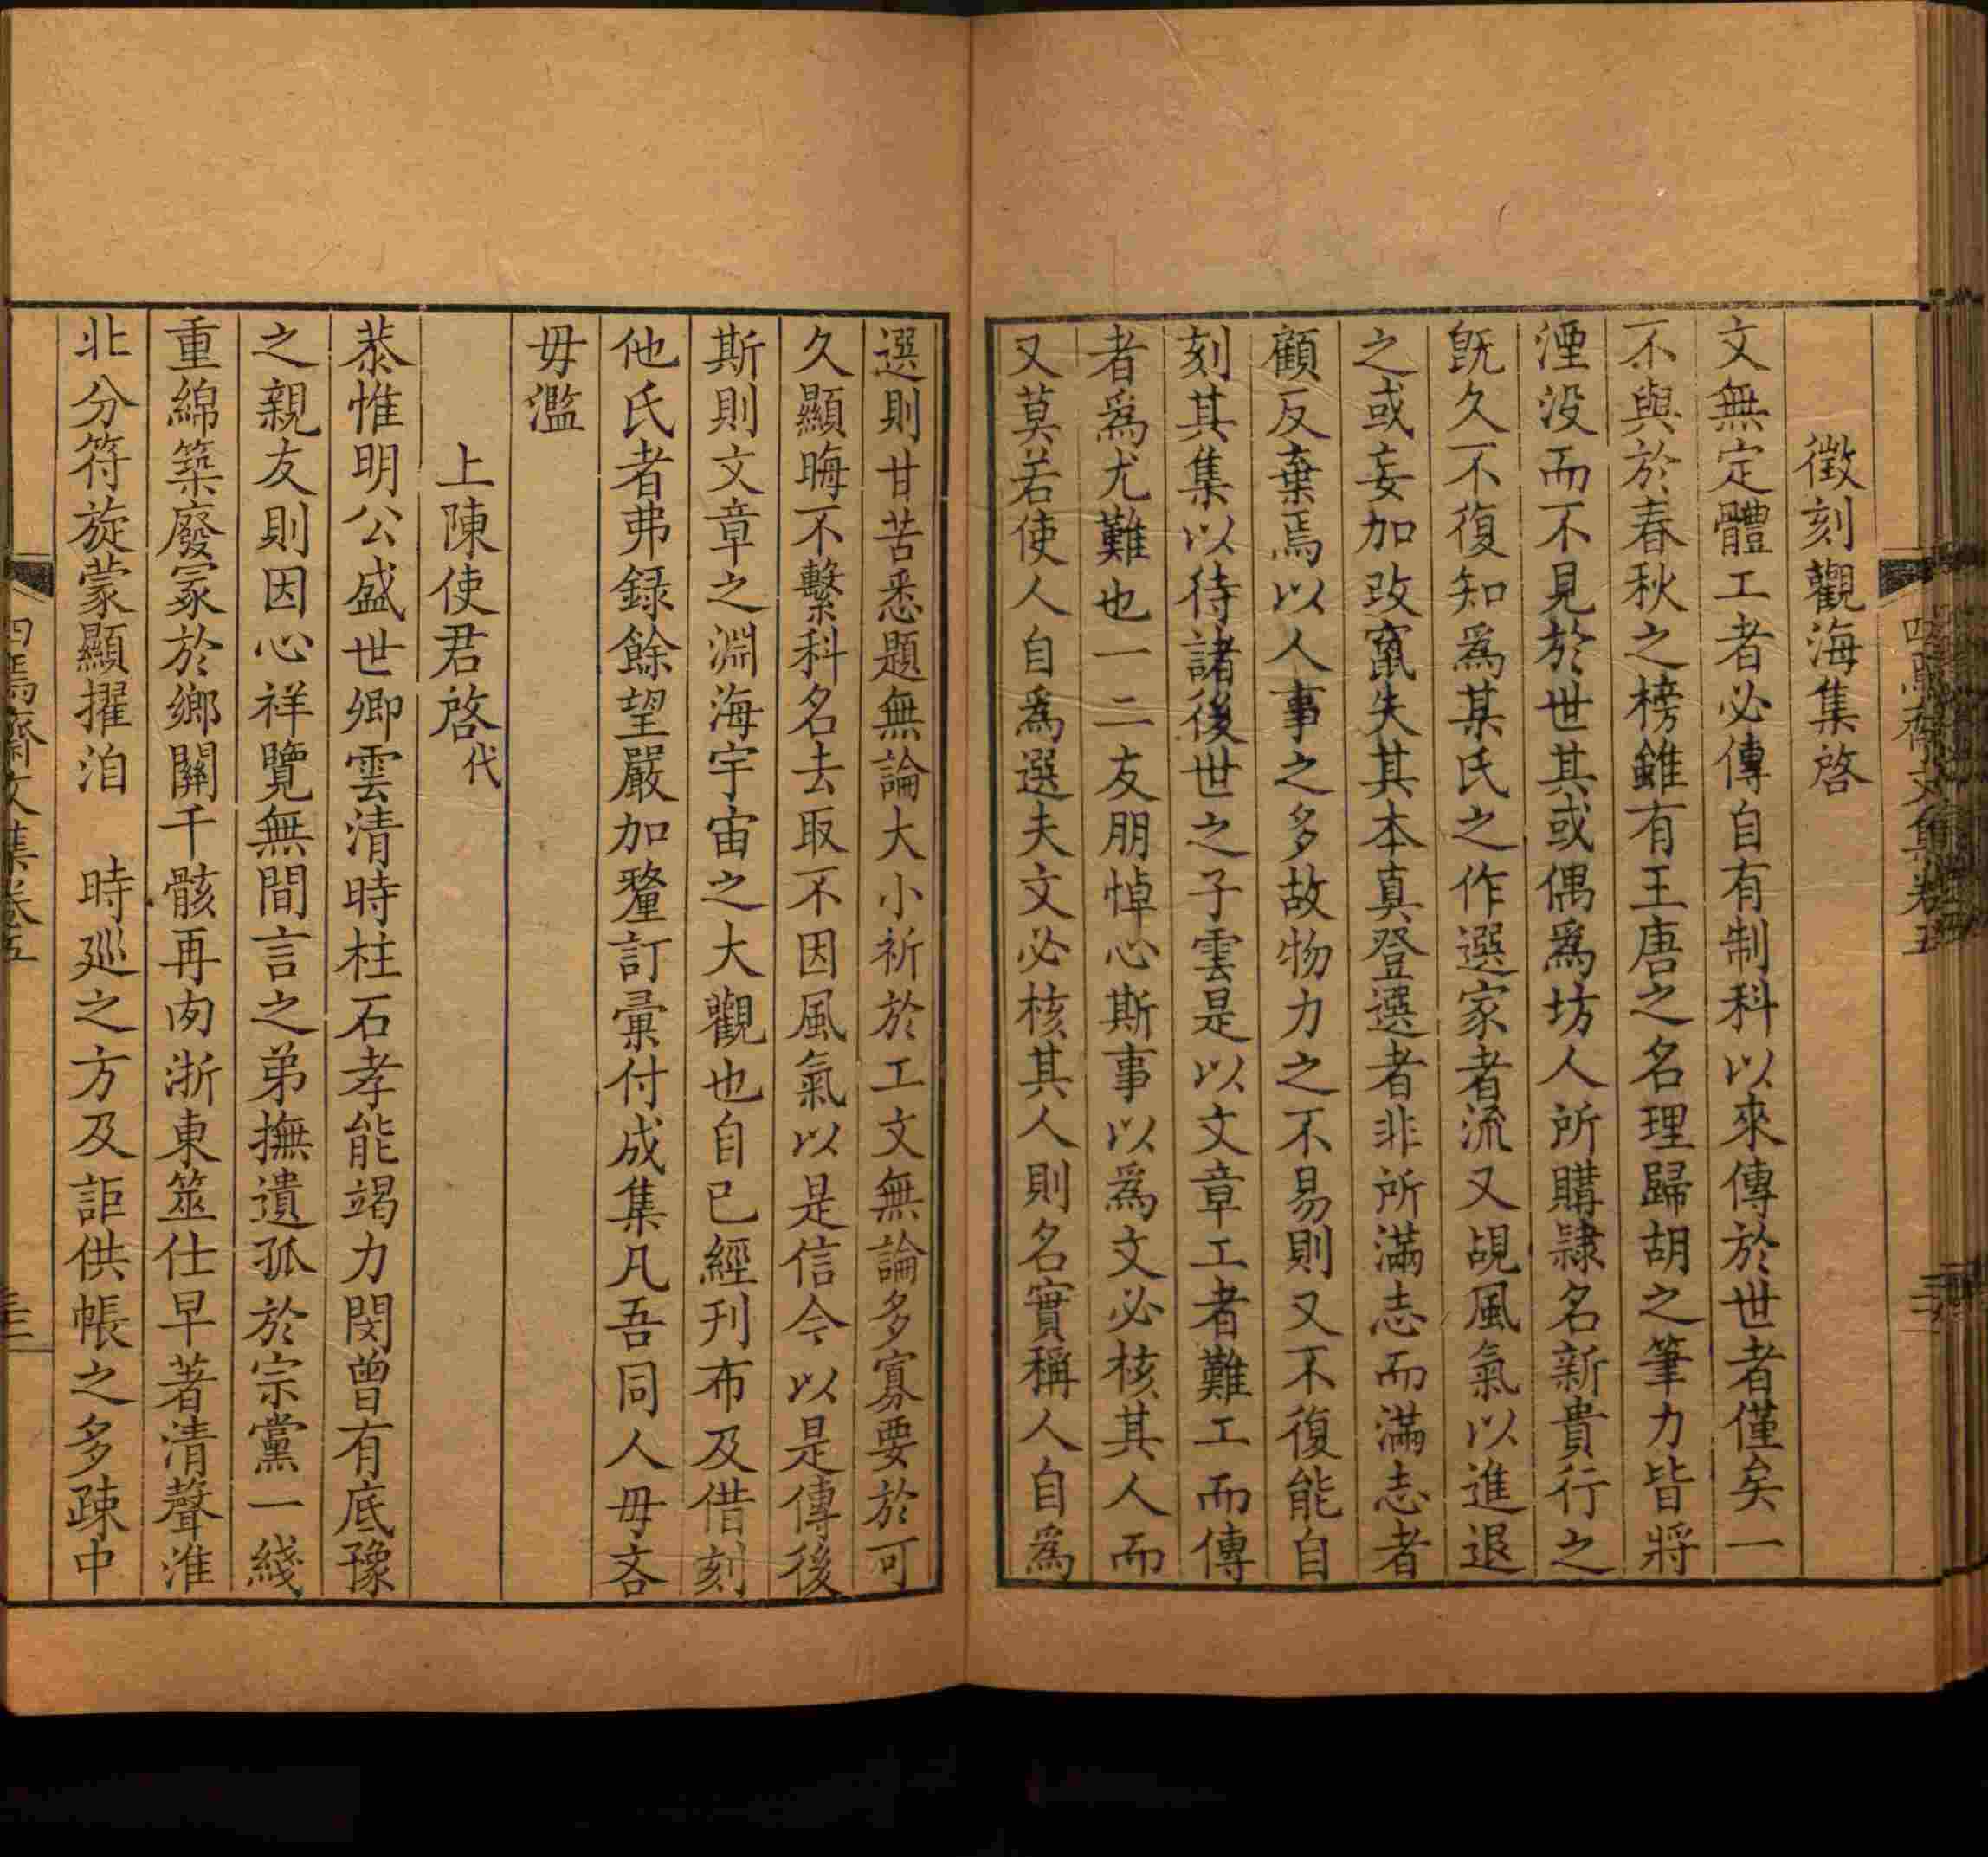 徵刻觀海集啓
文無定體工者必傳自有制科以來傳於世者僅矣一
不與於春秋之榜雖有王唐之名理歸胡之筆力皆將
湮没而不見於世其或偶爲坊人所購隷名新貴行之
旣久不復知爲某氏之作選家者流又覘風氣以進退
之或妄加改竄失其本真登選者非所滿志而滿志者
顧反棄焉以人事之多故物力之不易則又不復能自
刻其集以待諸後世之子雲是以文章工者難工而傳
者爲尤難也一二友朋悼心斯事以爲文必核其人而
又莫若使人自爲選夫文必核其人則名實稱人自爲
選則甘苦悉題無論大小祈於工文無論多寡要於可
久顯晦不繫科名去取不因風氣以是信今以是傳後
斯則文章之淵海宇宙之大觀也自已經刊布及借刻
他氏者弗録餘望嚴加釐訂彙付成集凡吾同人毋吝
毋濫
上陳使君啓代
恭惟明公盛世卿雲清時柱石孝能竭力閔曾有底豫
之親友則因心祥覽無間言之弟撫遺孤於宗黨一綫
重綿築廢冢於鄉關千骸再肉浙東筮仕早著清聲淮
北分符旋蒙顯擢洎　時廵之方及詎供帳之多疎中
四焉齋文集卷五